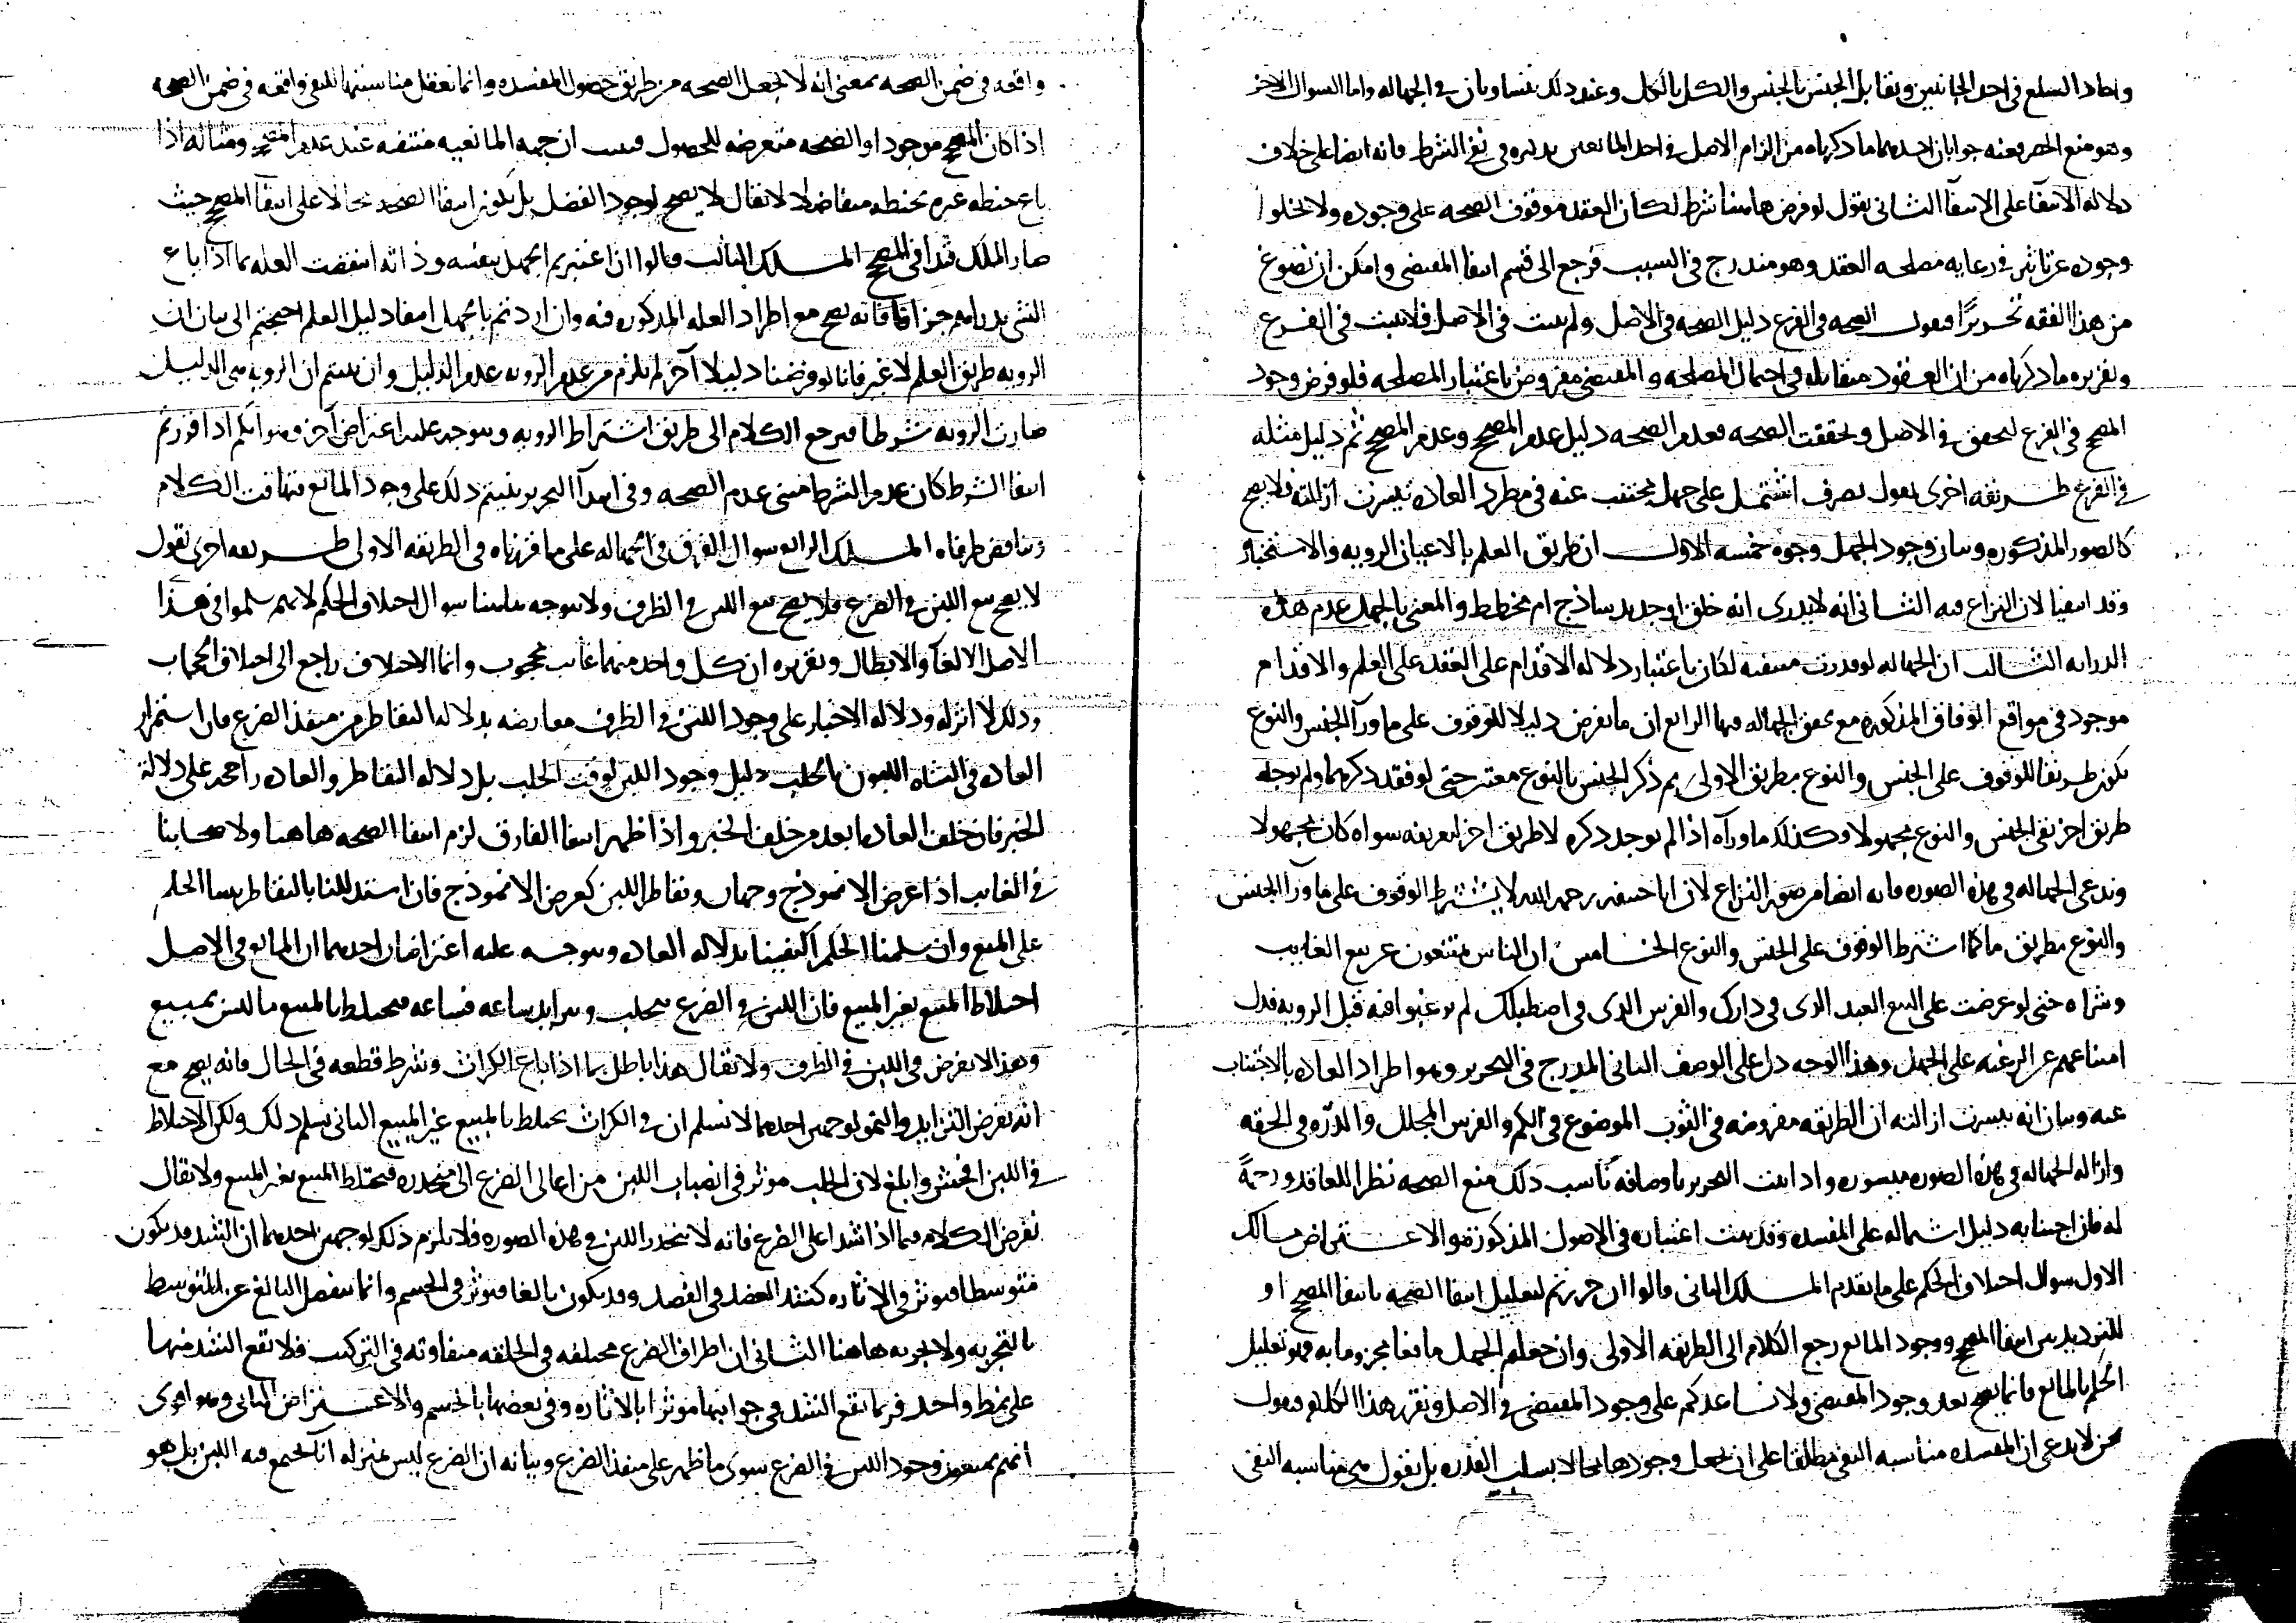 واحاد السلع في احد الجانبين وتقابل الجنس بالجنس والكل بالكل وعند ذلك يتساويان في الجهاله واما السوال الاخر
وهو منع الحصر فعنه جوابان احدهما ما ذكرناه من الزام الاصل في احد المانعين في نفي الشرط فانه ايضا على خلاف
دلاله الاتفاق على الانتفا الثاني نقول لو فرض هاهنا شرط لكان العقد موقوف الصحه على وجوده ولا يخلوا
وجوده عن تاثير في رعايه مصلحه العقد وهو مندرج في السبب فرجع الى قسم انتفا المقتضي وامكن ان نصوغ
من هذا الفقه تحريرًا فنقول الصحه في الفرع دليل الصحه في الاصل ولم يثبت في الاصل فلا يثبت في الفرع
وتقريره ما ذكرناه من ان العقود متقابله في احتمال المصلحه والمقتضي مفروض باعتبار المصلحه فلو فرض وجود
المصحح في الفرع لتحقق في الاصل ولتحققت الصحه فعدم الصحه دليل عدم المصحح وعدم المصحح ثم دليل مثله
في الفرع طريقه اخرى نقول تصرف اشتمل على جهل مجتنب عنه في مطرد العاده تيسرت ازالته فلا يصح
كالصور المذكوره وبيان وجود الجهل وجوه خمسه الاول ان طريق العلم بالاعيان الرويه والاستخبار
وقد انتفيا لان النزاع فيه الثاني انه لا يدرى انه خلق او جديد ساذج ام مخطط والمعني بالجهل عدم هذه
الدرايه الثالث ان الجهاله لو قدرت منتفيه لكان باعتبار دلاله الاقدام على العقد على العلم والاقدام
موجود في مواقع الوفاق المذكوره مع تحقق الجهاله فيها الرابع ان ما يفرض دليلا للوقوف على ما ورآ الجنس والنوع
يكون طريقا للوقوف على الجنس والنوع بطريق الاولى ثم ذكر الجنس بالنوع معتبر حتى لو فقد ذكرهما ولم يوجد
طريق اخر بقي الجنس والنوع مجهولا وكذلك ما ورآه اذا لم يوجد ذكره لا طريق اخر لتعريفه سواه كان مجهولا
وندعي الجهاله في هذه الصوره فانه ايضا من صور النزاع لان ابا حنيفه رحمه الله لا يشترط الوقوف على ما ورآ الجنس
والنوع بطريق ما كما اشترط الوقوف على الجنس والنوع الخامس ان الناس يمتنعون عن بيع الغايب
وشراه حتى لو عرضت على البيع العبد الذى في دارك والفرس الذى في اصطبلك لم يرغبوا فيه قبل الرويه فدل
امتناعهم عن الرغبه على الجهل وهذا الوجه دل على الوصف الثاني المدرج في التحرير وهو اطراد العاده بالاجتناب
عنه وبيان انه تيسرت ازالته ان الطريقه مفروضه في الثوب الموضوع في الكم والفرس المجلل والدّره في الحقه
وازاله الجهاله في هذه الصوره ميسوره واذا ثبت التحرير باوصافه ناسب ذلك منع الصحه نظرا للعاقد ورحمةً
له فان اجتنابه دليل اشتماله على المفسده وقد ثبت اعتباره في الاصول المذكوره والاعتراض مسالك
الاول سوال اختلاف الحكم على ما تقدم المسلك الثاني قالوا ان حررتم لتعليل انتفا الصحه بانتفا المصحح او
للترديد بين انتفا المصحح ووجود المانع رجع الكلام الى الطريقه الاولى وان جعلتم الجهل مانعا مجزوما به فهو تعليل
الحكم بالمانع فانما يصح بعد وجود المقتضي ولا نساعدكم على وجود المقتضي في الاصل وتقرير هذا الكلام فنقول
نحن لا ندعي ان المفسده مناسبه النفي مطلقا على ان نجعل وجودها محالا بسلب القدره بل نقول هي مناسبه النفي
واقعه في ضمن الصحه بمعنى انه لا يجعل الصحه من طريق حصول المفسده وانما تعقل مناسبتها للنفي واقعه في ضمن الصحه
اذا كان المصحح موجودا والصحه متعرضه للحصول فثبت ان جهه المانعيه منتفيه عند عدم المصحح ومثاله اذا
باع حنطه غيره بحنطه متفاضلا لا يقال لا يصح لوجود الفضل بل يكون انتفا الصحه محالا على انتفا المصحح حيث
صار الملك قيدا في المصحح المسلك الثالث قالوا ان اعتبرتم الجهل بنفسه وذاته انتقضت العله بما اذا باع
الشي بدراهم جزافا فانه يصح مع اطراد العله المذكوره فيه وان اردتم بالجهل انتفا دليل العلم احتجتم الى بيان ان
الرويه طريق العلم لا غير فانا لو فرضنا دليلا آخر لم يلزم من عدم الرويه عدم الدليل وان بينتم ان الرويه هي الدليل
صارت الرويه شرطا فيرجع الكلام الى طريق اشتراط الرويه ويتوجه عليه اعتراض آخر وهو انكم اذا قررتم
انتفا الشرط كان عدم الشرط مبنى عدم الصحه وفي ابتدآ التحرير بنيتم ذلك على وجود المانع فتهافت الكلام
وتناقض طرفاه المسلك الرابع سوال الفرق في الجهاله على ما قررناه في الطريقه الاولى طريقه اخرى نقول
لا يصح بيع اللبن في الضرع فلا يصح بيع اللبن في الظرف ولا يتوجه هاهنا سوال اختلاف الحكم لانهم سلموا في هذا
الاصل الالغآ والابطال وتقريره ان كل واحد منهما غايب محجوب وانما الاختلاف راجع الى اختلاف الحجاب
وذلك لا اثر له ودلاله الاخبار على وجود اللبن في الظرف معارضه بدلاله التقاطر من منفذ الضرع فان استمرار
العاده في الشاه اللبون بالحلب دليل وجود اللبن لوقت الحلب بل دلاله التقاطر والعاده راجحه على دلالة
الخبر فان خلف العاده ابعد من خلف الخبر واذا ظهر انتفا الفارق لزم انتفا الصحه هاهنا ولاصحابنا
في الغايب اذا عرض الانموذج وجهان وتقاطر اللبن كعرض الانموذج فان استدللنا بالتقاطر بنينا الحكم
على المنع وان سلمنا الحكم اكتفينا بدلاله العاده ويتوجه عليه اعتراضان احدهما ان المانع في الاصل
اختلاط المبيع بغير المبيع فان اللبن في الضرع يتحلب ويتزايد ساعه فساعه فيختلط بالمبيع ما ليس بمبيع
وهذا لا يفرض في اللبن في الظرف ولا يقال هذا باطل بما اذا باع الكراث وشرط قطعه في الحال فانه يصح مع
انه يفرض التزايد والنمو لوجهين احدهما لا نسلم ان في الكراث يختلط بالمبيع غير المبيع الثاني نسلم ذلك ولكن الاختلاط
في اللبن افحش وابلغ لان الحلب موثر في انصباب اللبن من اعالي الضرع الى منحدره فيختلط المبيع بغير المبيع ولا يقال
نفرض الكلام فيما اذا شد اعلى الضرع فانه لا ينحدر اللبن في هذه الصوره فلا يلزم ذلك لوجهين احدهما ان الشد قد يكون
متوسطا فيوثر في الاثاره كشد العضد في الفصد وقد يكون بالغا فيوثر في الحسم وانما ينفصل البالغ عن المتوسط
بالتجربه ولا تجربه هاهنا الثاني ان اطراف الضرع مختلفه في الخلقه متفاوته في التركيب فلا يقع الشد منها
على نمط واحد فربما يقع الشد في جوانبها موثرا بالاثاره وفي بعضها بالحسم والاعتراض الثاني وهو اقوى
انهم يمنعون وجود اللبن في الضرع سوى ما ظهر على منفذ الضرع وبيانه ان الضرع ليس بمنزله انآ يجتمع فيه اللبن بل هو